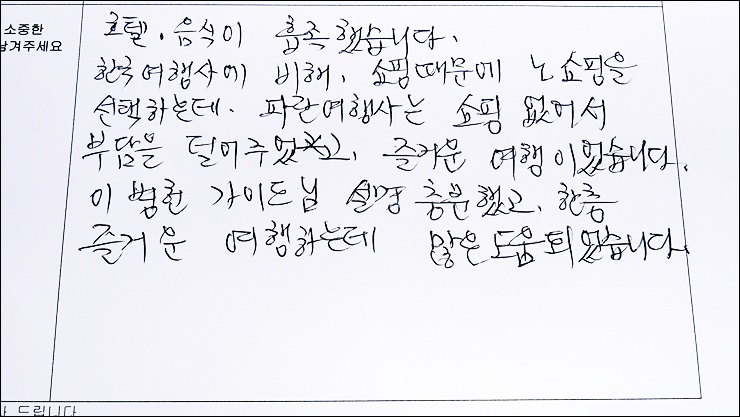 소중한
남겨주세요
호텔·음식이 흡족했습니다.
한국여행사에 비해, 쇼핑때문에 노쇼핑을
선택하는데. 파란여행사는 쇼핑 없어서
부담을 덜어주었고, 즐거운 여행이었습니다.
이병헌 가이드님 설명 충분했고, 한층
즐거운 여행하는데 많은도움되었습니다.
드립니다